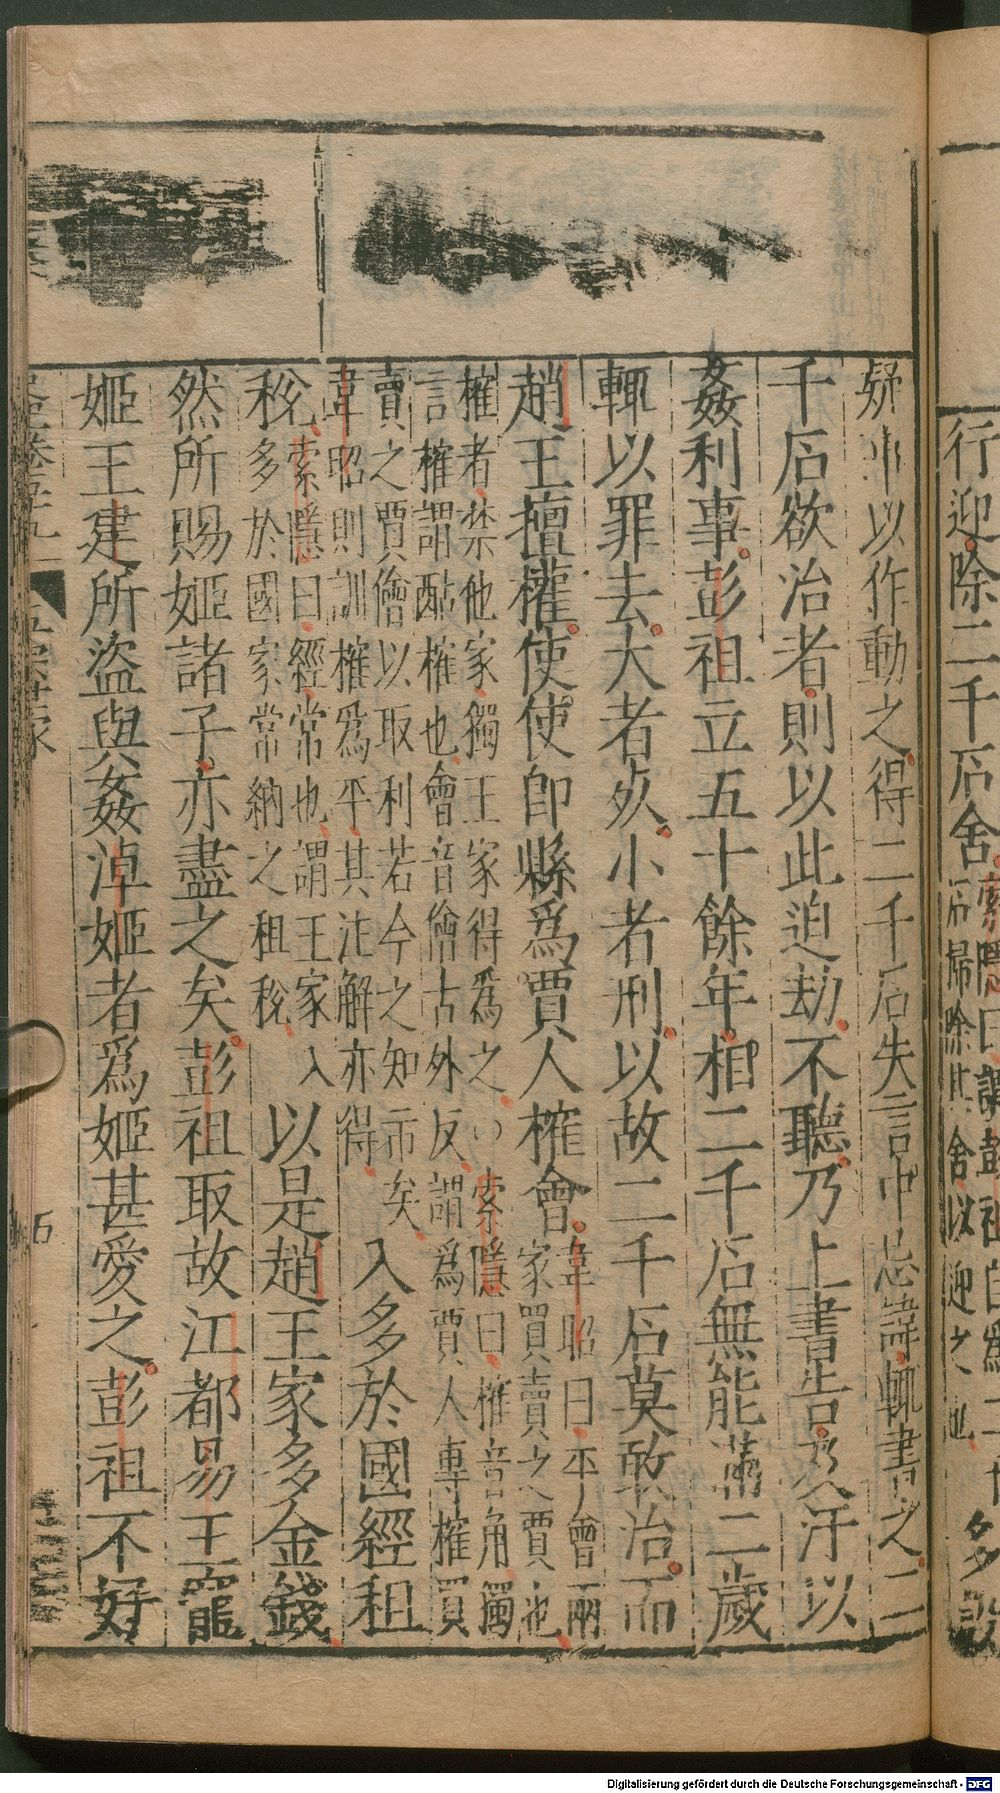 行迎除二千石舍索隱曰謂彭祖自爲二
石掃除其舍以迎之也
疑事以作動之得二千石失言中忌諱輒書之二
千石欲治者則以此迫劫不聽乃上書告及汙以
姦利事彭祖立五十餘年相二千石無能滿二歲
輒以罪去大者死小者刑以故二千石莫敢治而
趙王擅權使使即縣爲賈人榷會韋昭曰平會兩
家買賣之賈也
榷者禁他家獨王家得爲之〇索隱曰榷音角獨
言榷謂酤榷也會音儈古外反謂爲賈人專榷買
賣之賈儈以取利若今之知市矣
韋昭則訓榷爲平其注解亦得
入多於國經租
稅索隱曰經常也謂王家入
多於國家常納之租稅
以是趙王家多金錢
然所賜姬諸子亦盡之矣彭祖取故江都易王寵
姬王建所盜與姦淖姬者爲姬甚愛之彭祖不好
史卷五十九
五宗世家
五
Digitalisierung gefördert durch die Deutsche Forschungsgemeinschaft - DFG